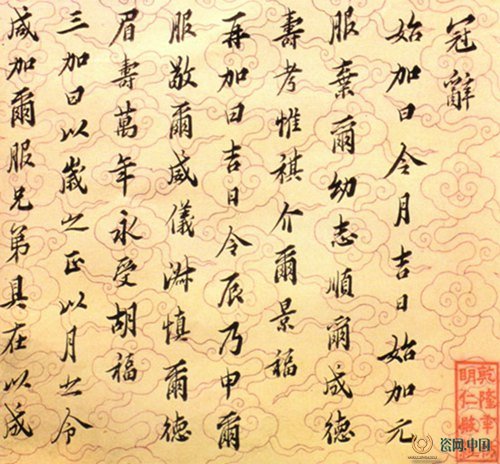 冠辭
始加曰令月吉日始加元
服棄爾幼志順爾成德
壽考惟祺介爾景福
再加曰吉日令辰乃申爾
服敬爾威儀淑慎爾德
眉壽萬年永受胡福
三加曰以歲之正以月之令
咸加爾服兄弟具在以成
乾隆年
明仁殿
瓷网.中国